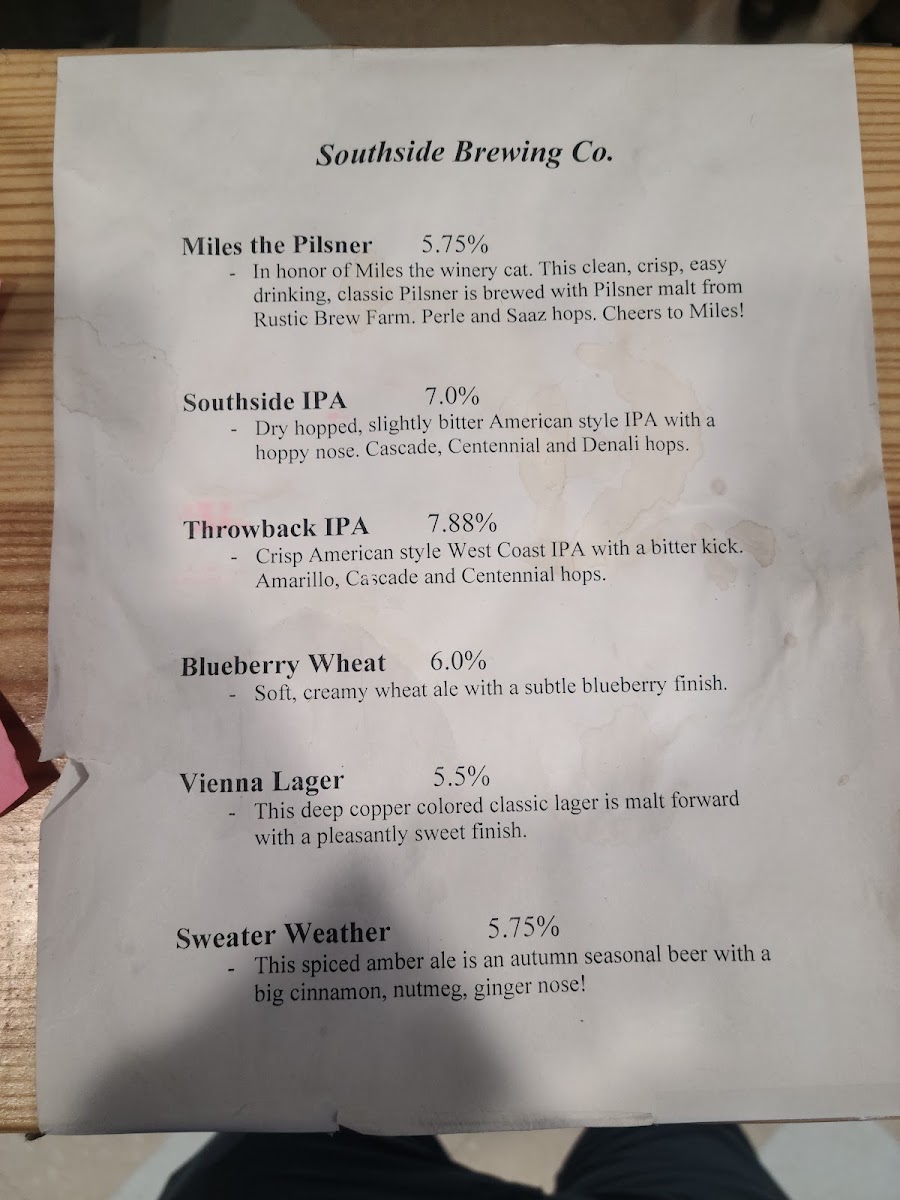 Southside Brewing Co.
Miles the Pilsner 5.75%
- In honor of Miles the winery cat. This clean, crisp, easy
drinking, classic Pilsner is brewed with Pilsner malt from
Rustic Brew Farm. Perle and Saaz hops. Cheers to Miles!
Southside IPA 7.0%
- Dry hopped, slightly bitter American style IPA with a
hoppy nose. Cascade, Centennial and Denali hops.
Throwback IPA 7.88%
- Crisp American style West Coast IPA with a bitter kick.
Amarillo, Cascade and Centennial hops.
Blueberry Wheat 6.0%
- Soft, creamy wheat ale with a subtle blueberry finish.
Vienna Lager 5.5%
- This deep copper colored classic lager is malt forward
with a pleasantly sweet finish.
Sweater Weather 5.75%
- This spiced amber ale is an autumn seasonal beer with a
big cinnamon, nutmeg, ginger nose!